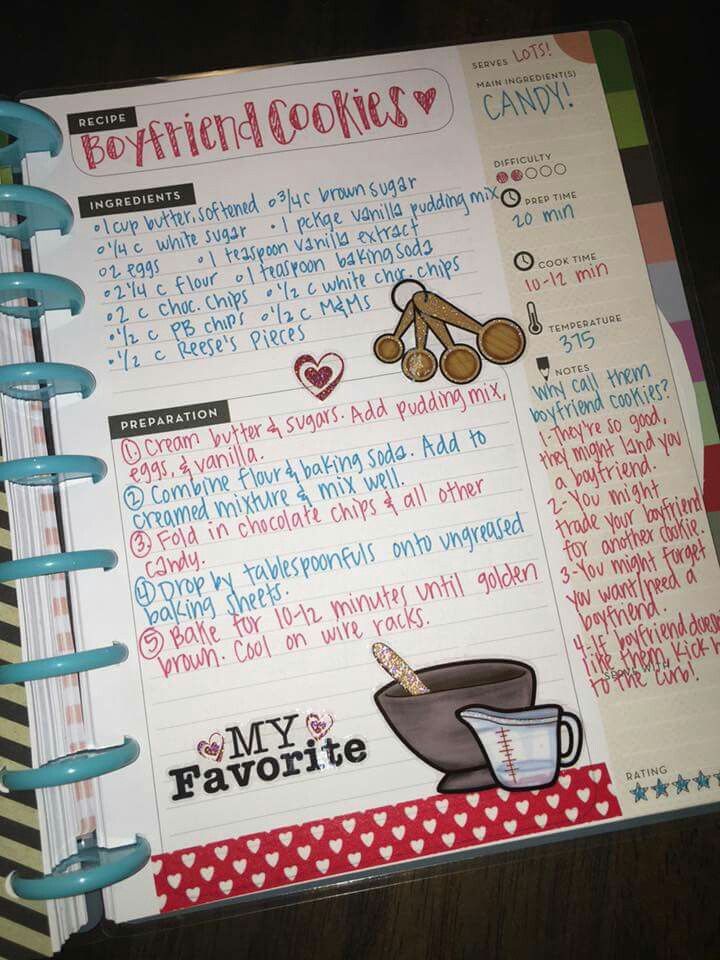 RECIPE
Boyfriend Cookies
INGREDIENTS
1 cup butter, softened 3/4 c brown sugar
1/4 c white sugar 1 pckge vanilla pudding mix
2 eggs 1 teaspoon vanilla extract
2 1/4 c flour 1 teaspoon baking soda
2 c choc. chips 1/2 c white choc. chips
1/2 c PB chips 1/2 c M&Ms
1/2 c Reese's Pieces
PREPARATION
① Cream butter & sugars. Add pudding mix,
eggs, & vanilla.
② Combine flour & baking soda. Add to
creamed mixture & mix well.
③ Fold in chocolate chips & all other
candy.
④ Drop by tablespoonfuls onto ungreased
baking sheets.
⑤ Bake for 10-12 minutes until golden
brown. Cool on wire racks.
MY
Favorite
SERVES LOTS!
MAIN INGREDIENT(S)
CANDY!
DIFFICULTY
PREP TIME
20 min
COOK TIME
10-12 min
TEMPERATURE
375
NOTES
Why call them
boyfriend cookies?
1-They're so good,
they might land you
a boyfriend.
2-You might
trade your boyfriend
for another cookie
3-You might forget
you want/need a
boyfriend.
4-if boyfriend doesn
like them, kick h
SERVE WITH
to the curb!
RATING